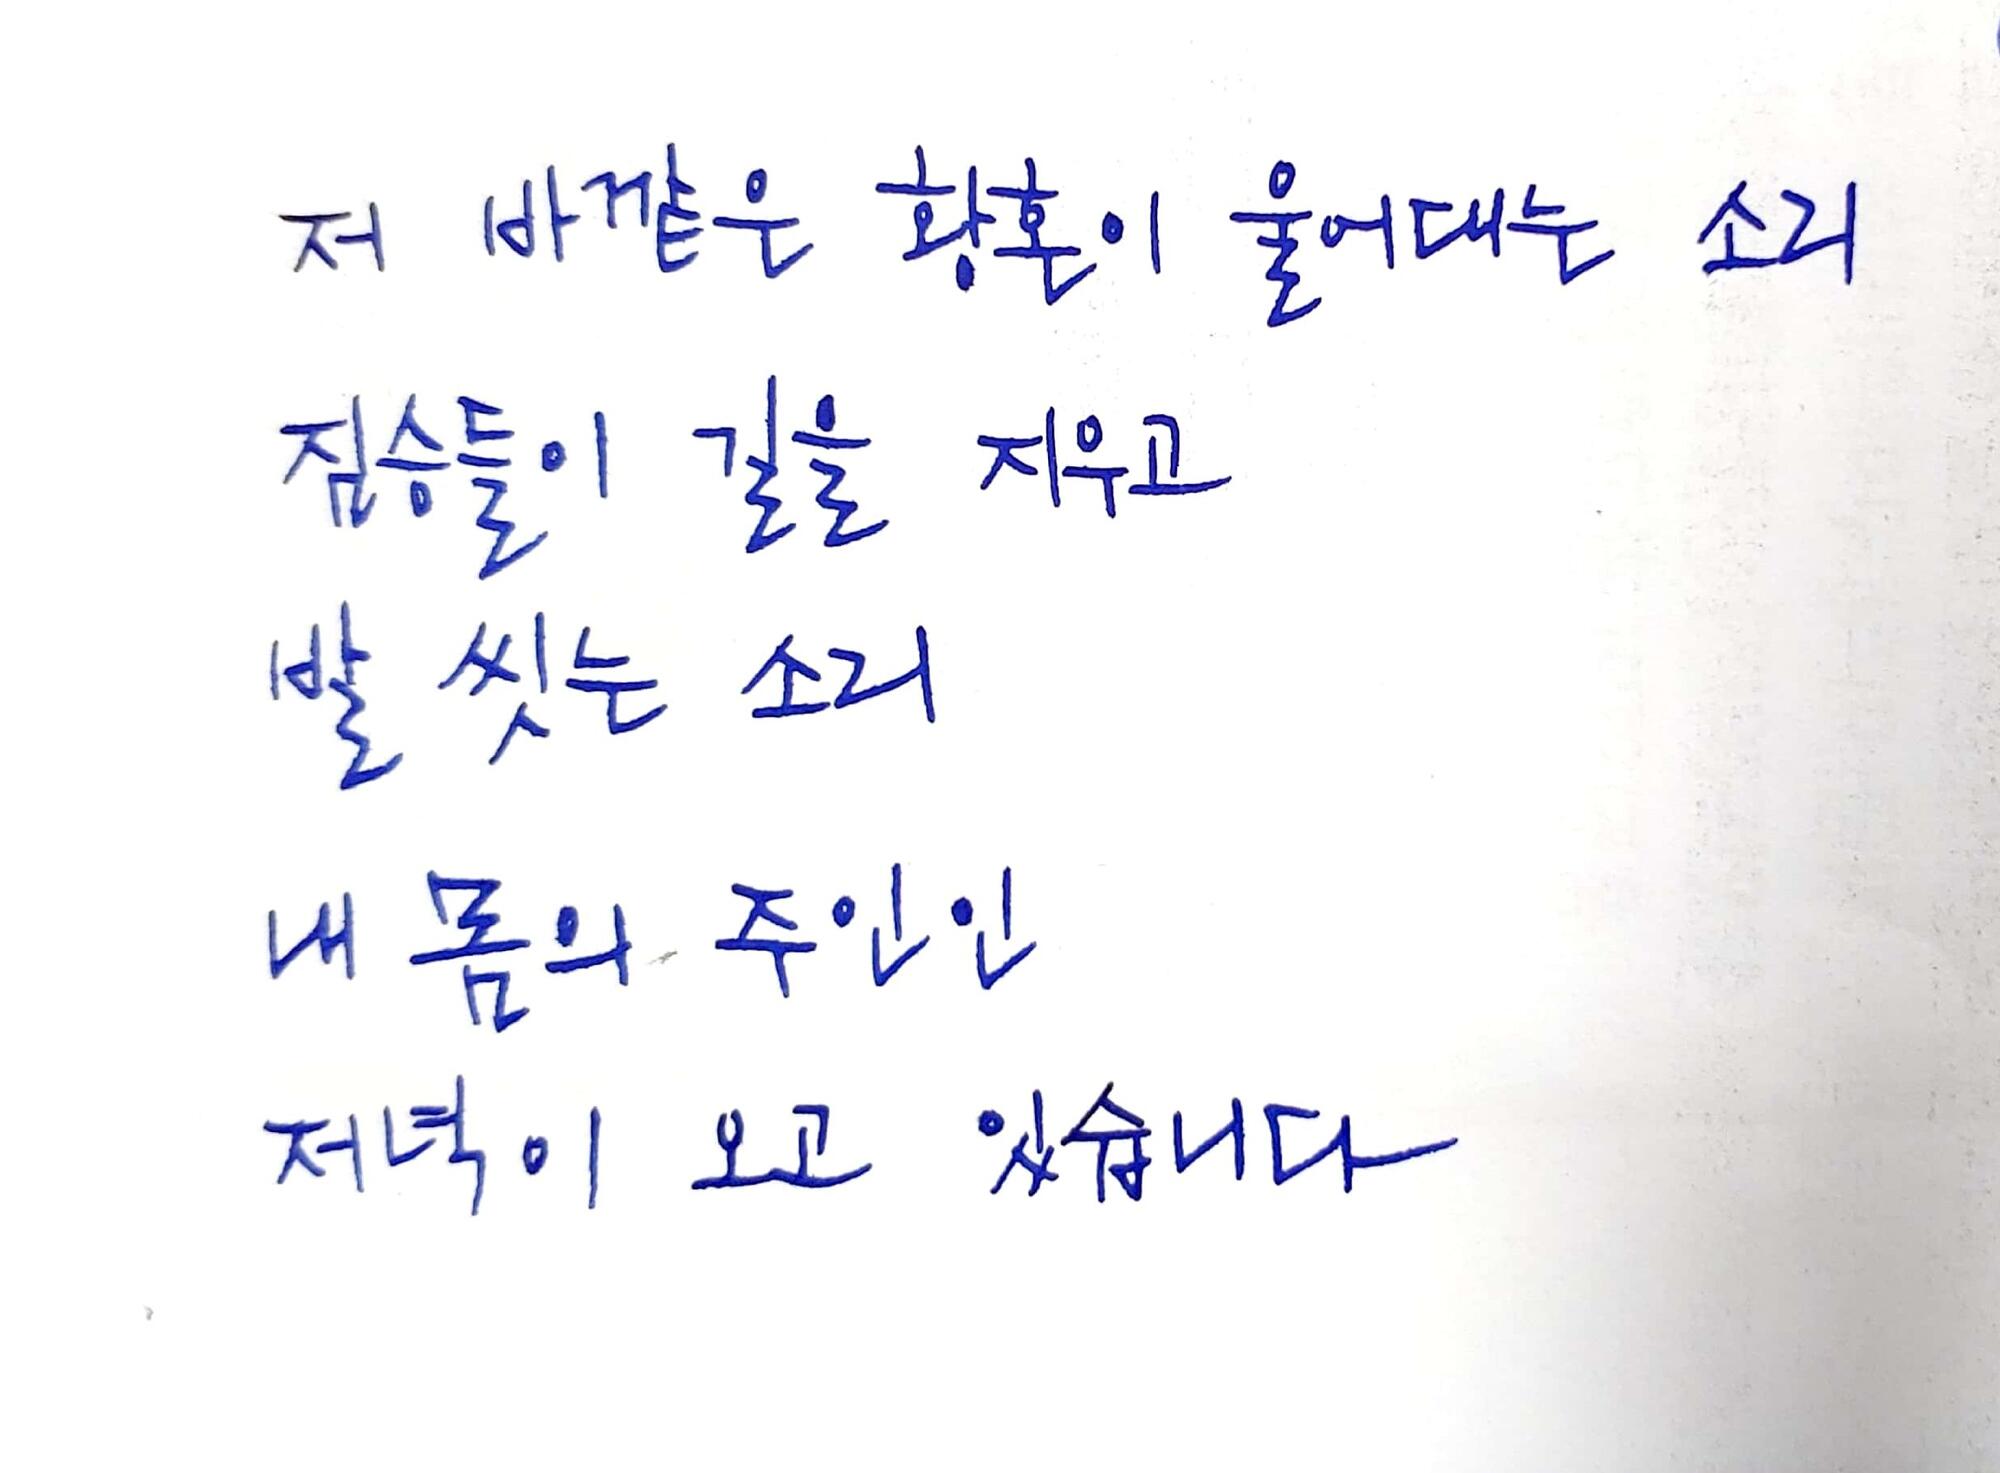 저 바깥은 황혼이 울어대는 소리
짐승들이 길을 지우고
발 씻는 소리
내 몸의 주인인
저녁이 오고 있습니다